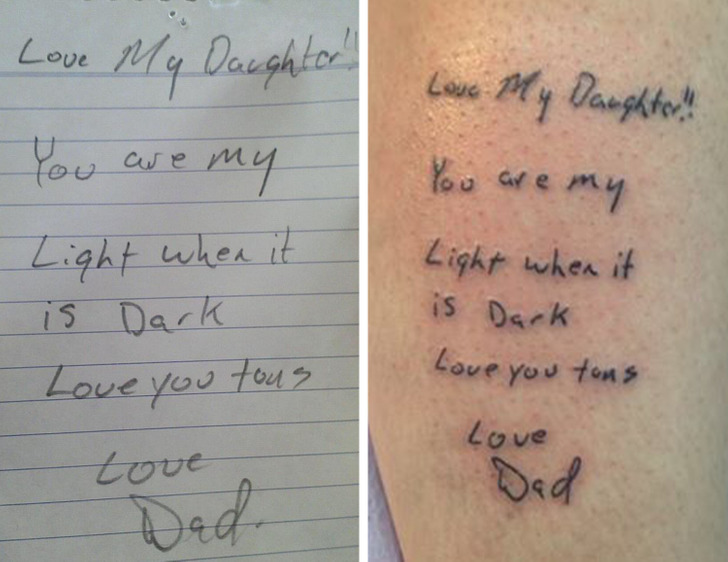 Love My Daughter!!
You are my
Light when it
is Dark
Love you tons
Love
Dad.
Love My Daughter!!
You are my
Light when it
is Dark
Love you tons
Love
Dad